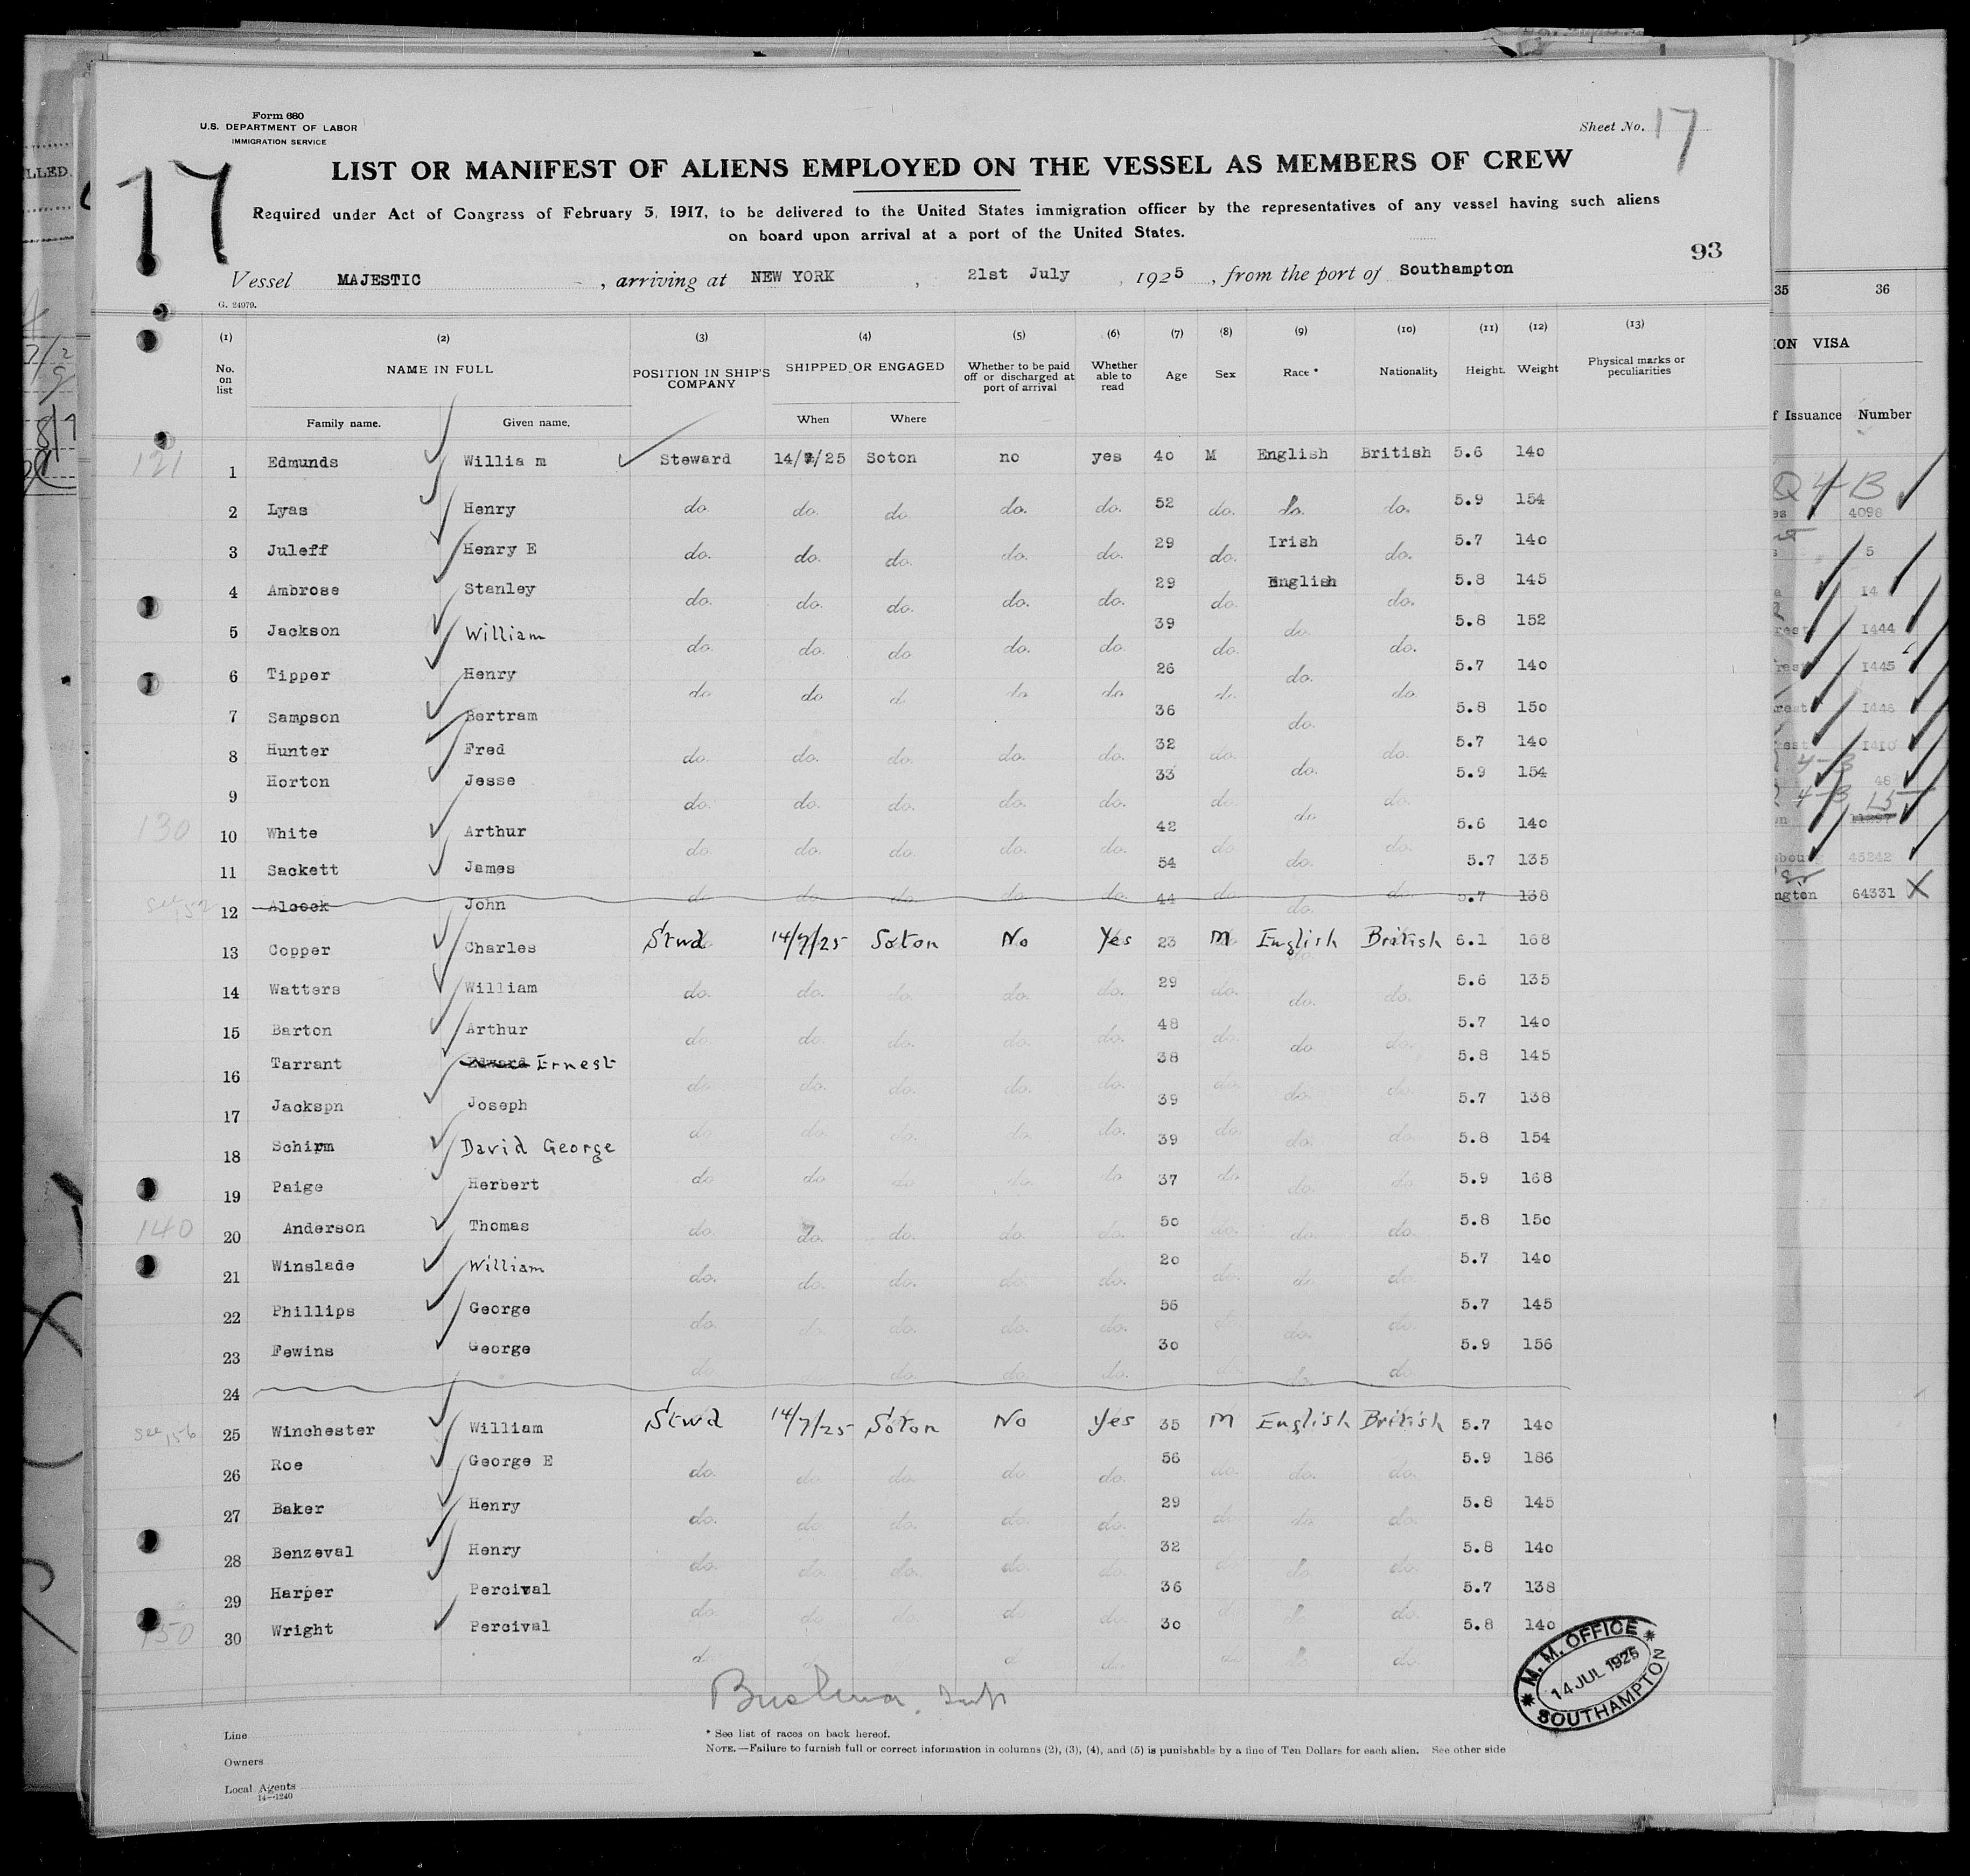 Form 680
U.S. DEPARTMENT OF LABOR
IMMIGRATION SERVICE
Sheet No. 17
17
LIST OR MANIFEST OF ALIENS EMPLOYED ON THE VESSEL AS MEMBERS OF CREW
Required under Act of Congress of February 5, 1917, to be delivered to the United States immigration officer by the representatives of any vessel having such aliens
on board upon arrival at a port of the United States.
93
Vessel MAJESTIC , arriving at NEW YORK , 21st July , 1925 , from the port of Southampton
G. 24979.
(1) (2) (3) (4) (5) (6) (7) (8) (9) (10) (11) (12) (13)
No. on list NAME IN FULL POSITION IN SHIP'S COMPANY SHIPPED OR ENGAGED Whether to be paid off or discharged at port of arrival Whether able to read Age Sex Race * Nationality Height Weight Physical marks or peculiarities
Family name. Given name. When Where
121 1 Edmunds William Steward 14/7/25 Soton no yes 40 M English British 5.6 140
2 Lyas Henry do. do. do do. do. 52 do. do. do. 5.9 154
3 Juleff Henry E do. do. do. do. do. 29 do. Irish do. 5.7 140
4 Ambrose Stanley do. do. do. do. do. 29 do. English do. 5.8 145
5 Jackson William do. do. do do. do. 39 do. do. do. 5.8 152
6 Tipper Henry do do d do do 26 do. do. do 5.7 140
7 Sampson Bertram 36 do. 5.8 150
8 Hunter Fred do. do. do. do. do. 32 do. do. do. 5.7 140
9 Horton Jesse do. do. do. do. do. 33 do. do. do. 5.9 154
130 10 White Arthur do. do. do. do. do. 42 do do. do. 5.6 140
11 Sackett James 54 5.7 135
see 152 12 Alcock John do do. do. do. do. 44 do do. do. 5.7 138
13 Copper Charles Stwd 14/7/25 Soton No Yes 23 M English British 6.1 168
14 Watters William do. do. do. do. do. 29 do. do. do. 5.6 135
15 Barton Arthur do. do. do. do. do. 48 do. do do. 5.7 140
16 Tarrant Edward Ernest do. do. do. do. do. 38 do. do. do. 5.8 145
17 Jackspn Joseph do do. do. do. do. 39 do. do. do. 5.7 138
18 Schirm David George 39 5.8 154
19 Paige Herbert do do do do. do 37 do do. do 5.9 168
140 20 Anderson Thomas do. do. do. do. do. 50 do. do. do. 5.8 150
21 Winslade William do. do. do. do. do. 20 do. do. do. 5.7 140
22 Phillips George do. do. do. do. do. 56 do. do. do. 5.7 145
23 Fewins George do. do. do. do. do. 30 do. do. do 5.9 156
24
see 156 25 Winchester William Stwd 14/7/25 Soton No Yes 35 M English British 5.7 140
26 Roe George E do. do do. do. do. 56 do. do. do. 5.9 186
27 Baker Henry do. do do. do. do. 29 do do do. 5.8 145
28 Benzeval Henry do. do. do. do. do. 32 do. do. do. 5.8 140
29 Harper Percival do. do. do. do do. 36 d do. 5.7 138
150 30 Wright Percival d d do. 30 do. do. 5.8 140
M. M. OFFICE
14 JUL 1925
SOUTHAMPTON
Line
* See list of races on back hereof.
NOTE.—Failure to furnish full or correct information in columns (2), (3), (4), and (5) is punishable by a fine of Ten Dollars for each alien. See other side
Owners
Local Agents
14—1240
LLED.
35 36
ION VISA
f Issuance Number
Q 4-B
4098
5
14
1444
1445
1446
1410
4-B
48
4-B 15
45242
ngton 64331 X